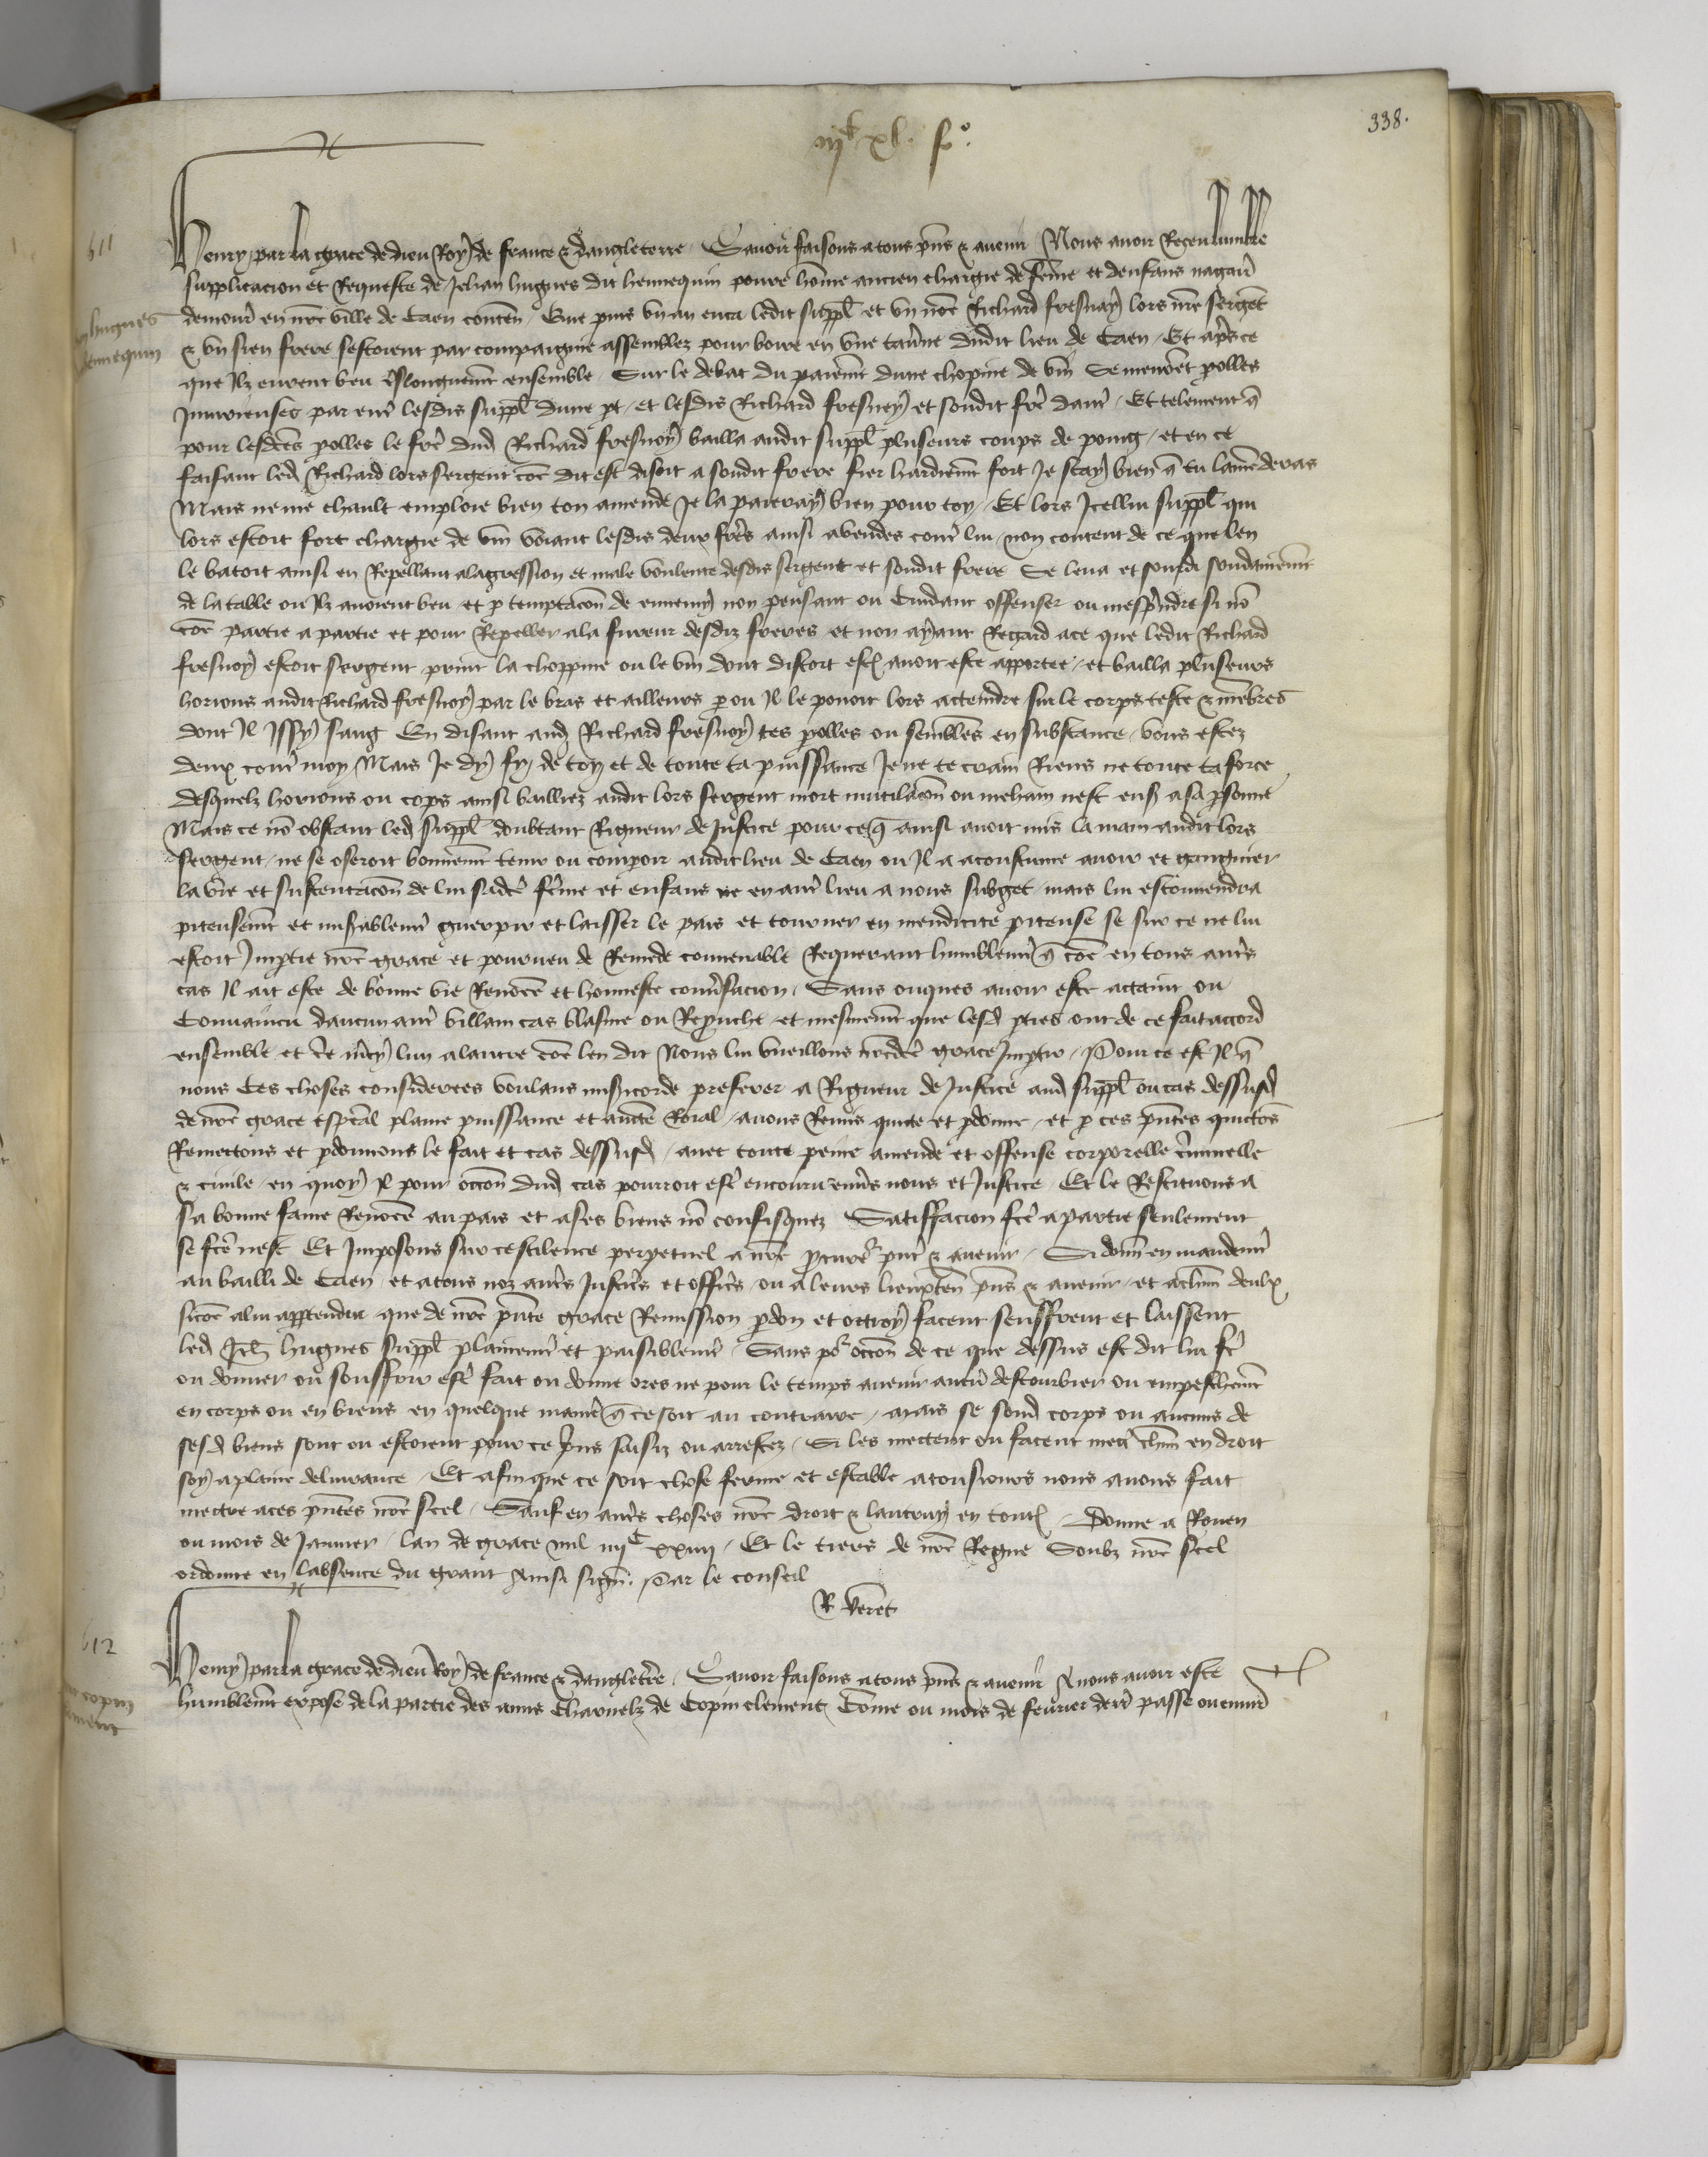 338.
iijc xl. fo.
611
Henry par la grace de dieu Roy de france & dangleterre Savoir faisons a tous pñs & avenir Nous avoir Receu lumble
supplicacion et Requeste de Jehan hugues dit hennequin povre hõme ancien chargie de fẽme et denfans nagair̃
demour̃ en nr̃e ville de Caen conteñ Que puis un an enca ledit suppl̃ et un nõe Richard fresnay lors nr̃e serget̃
hugues
hennequin
& un sien frere sestoient par compaignie assemblez pour boire en une tav̾ne dudit lieu de Caen Et apr̃s ce
que Ilz eurent beu ensemble Sur le debat du paiemt̃ dune chopine de vin Se meurẽt polles
Iniurieuses par entr̃ lesdis suppl̃ dune pt et lesdis Richard fresnoy et sondit fr̃e daut̃ Et telement q̃
pour lesdc̃es polles le fr̃e dud Richard fresnoy bailla audit suppl̃ pluseurs coups de poing et en ce
faisant led Richard lors sergent cõe dit est disoit a sondit frere fier hardiemt̃ fort Je scay bien q̃ tu lamẽderas
Mais ne me chault emploie bien ton amende Je la paieray bien pour toy Et lors Icellui suppl̃ qui
lors estoit fort chargie de vin voiant lesdis deux fr̃es ainsi contr̃ lui non content de ce que len
le batoit ainsi en Repellant alagression et male voulente desdis sergent et sondit frere Se leva et soudainemt̃
de la table ou Ilz avoient beu et p temptacõn de ennemy non pensant ou Cuidant offenser ou mesprẽdre si nõ
cõe partie a partie et pour Repeller ala fureur desdiz freres et non ayant Regard ace que ledit Richard
fresnoy estoit sergent print la choppine ou le vin dont discort est avoit este apportee et bailla pluseurs
horions audit Richard fresnoy par le bras et ailleurs p ou Il le povoit lors actaindre sur le corps teste & mẽbres
dont Il Issy sang En disant aud Richard fresnoy tes polles ou semblẽs en substance vous estez
deux contr̃ moy Mais Je dy fy de toy et de toute ta puissance Je ne te crain Riens ne toute ta force
desquelz horions ou cops ainsi bailliez audit lors sergent mort mutilacõn ou mehain nest ens̃ a sa psonne
Mais ce nõ obstant led suppl̃ doubtant Rigueur de Justice pour ce q̃ ainsi avoit mis la main audit lors
sergent ne se oseroit bonnemt̃ tenir ou compoir audit lieu de Caen ou Il a acoustume avoir et gaingnier
la vie et sustentacõn de lui sadc̃e fẽme et enfans ne en autr̃ lieu a nous subget mais lui estouvendra
piteusemt̃ et mis̃ablemt̃ guerpir et laisser le pais et tourner en mendicite piteuse se sur ce ne lui
estoit Imptie nr̃e grace et pourveu de Remede convenable Requerant humblemt̃ q̃ cõe en tous autr̃s
cas Il ait este de bonne vie Renõee et honneste conv̾sacion Sans onques avoir este actaint ou
Convaincu daucun autr̃ villain cas blasme ou Reprouche et mesmemt̃ que lesd pties ont de ce fait accord
ensemble et lun a lautre cõe len dit Nous lui vueillons nr̃edc̃e grace Imptir Pour ce est Il q̃
nous Ces choses considerees voulans mis̃icorde preferer a Rigueur de Justice aud suppl̃ ou cas dessusd
de nr̃e grace esp̃cial plaine puissance et auctẽ Roial avons Remis quicte et pdonne et p ces pñtes quictõs
Remectons et pdonnons le fait et cas dessusd avec toute peine amende et offense corporelle crĩinelle
& civile en quoy Il pour occõn dud cas pourroit estr̃ encouru env̾s nous et Justice Et le Restituons a
sa bonne fame Renõee au pais et a ses biens nõ confisquez Satisfacion fc̃e a partie seulement
se fc̃e nest Et Imposons sur ce silence perpetuel a nr̃e pcureur pñt & avenir Si donñ en mandemt̃
au bailli de Caen et a tous noz autr̃s Justic̃s et offic̃s ou a leurs lieuxteñ pñs & avenir et achũn deulx
sicõe a lui appartendra que de nr̃e pñte grace Remission pdon et ottroy facent seuffrent et laissent
led Jeh̃ hugues suppl̃ plainemt̃ et paisiblemt̃ Sans por occõn de ce que dessus est dit lui fr̃e
ou donner ou souffrir estr̃ fait ou donne ores ne pour le temps avenir aucũ destourbier ou empeschemt̃
en corps ou en biens en quelque manier̃ q̃ ce soit au contraire mais se sond corps ou aucuns de
sesd biens sont ou estoient pour ce prins saisiz ou arrestez Si les mectent ou facent mectr̃ chũn en droit
soy a plaine delivrance Et afin que ce soit chose ferme et estable a tousiours nous avons fait
mectre a ces pñtes nr̃e scel Sauf en autr̃s choses nr̃e droit & lautruy en toutes Donne a Rouen
ou mois de Janvier lan de grace mil iiijc xxiiij Et le tiers de nr̃e Regne Soubz nr̃e scel
ordonne en labsence du grant Ainsi signe Par le conseil
R Veret
612
Henry par la grace de dieu Roy de france & dangleterre Savoir faisons a tous pñs & avenir A nous avoir este
copin
clement
humblemt̃ expose de la partie des amis Charnelz de Copin clement Cõme ou mois de fevrier derr̃ passe ou environ